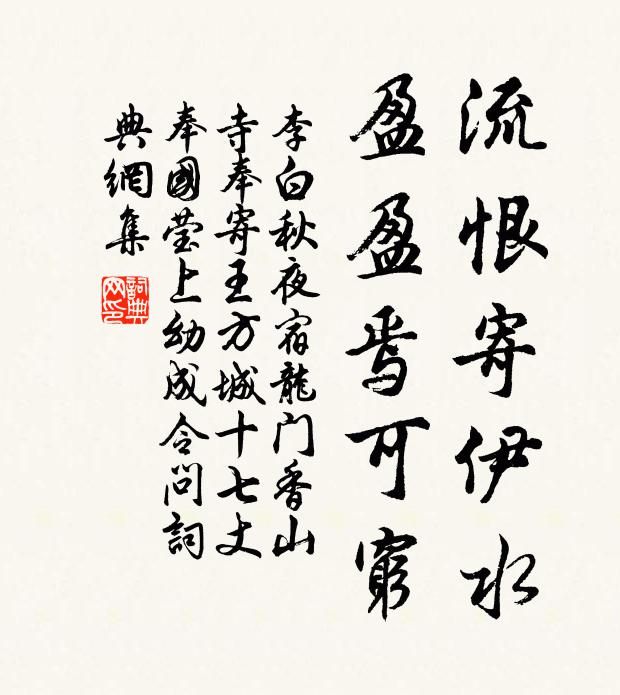 流恨寄伊水
盈盈焉可窮
李白秋夜宿龍门香山
寺奉寄王方城十七丈
奉國瑩上幼成令問詞
典網集
詞典
网印